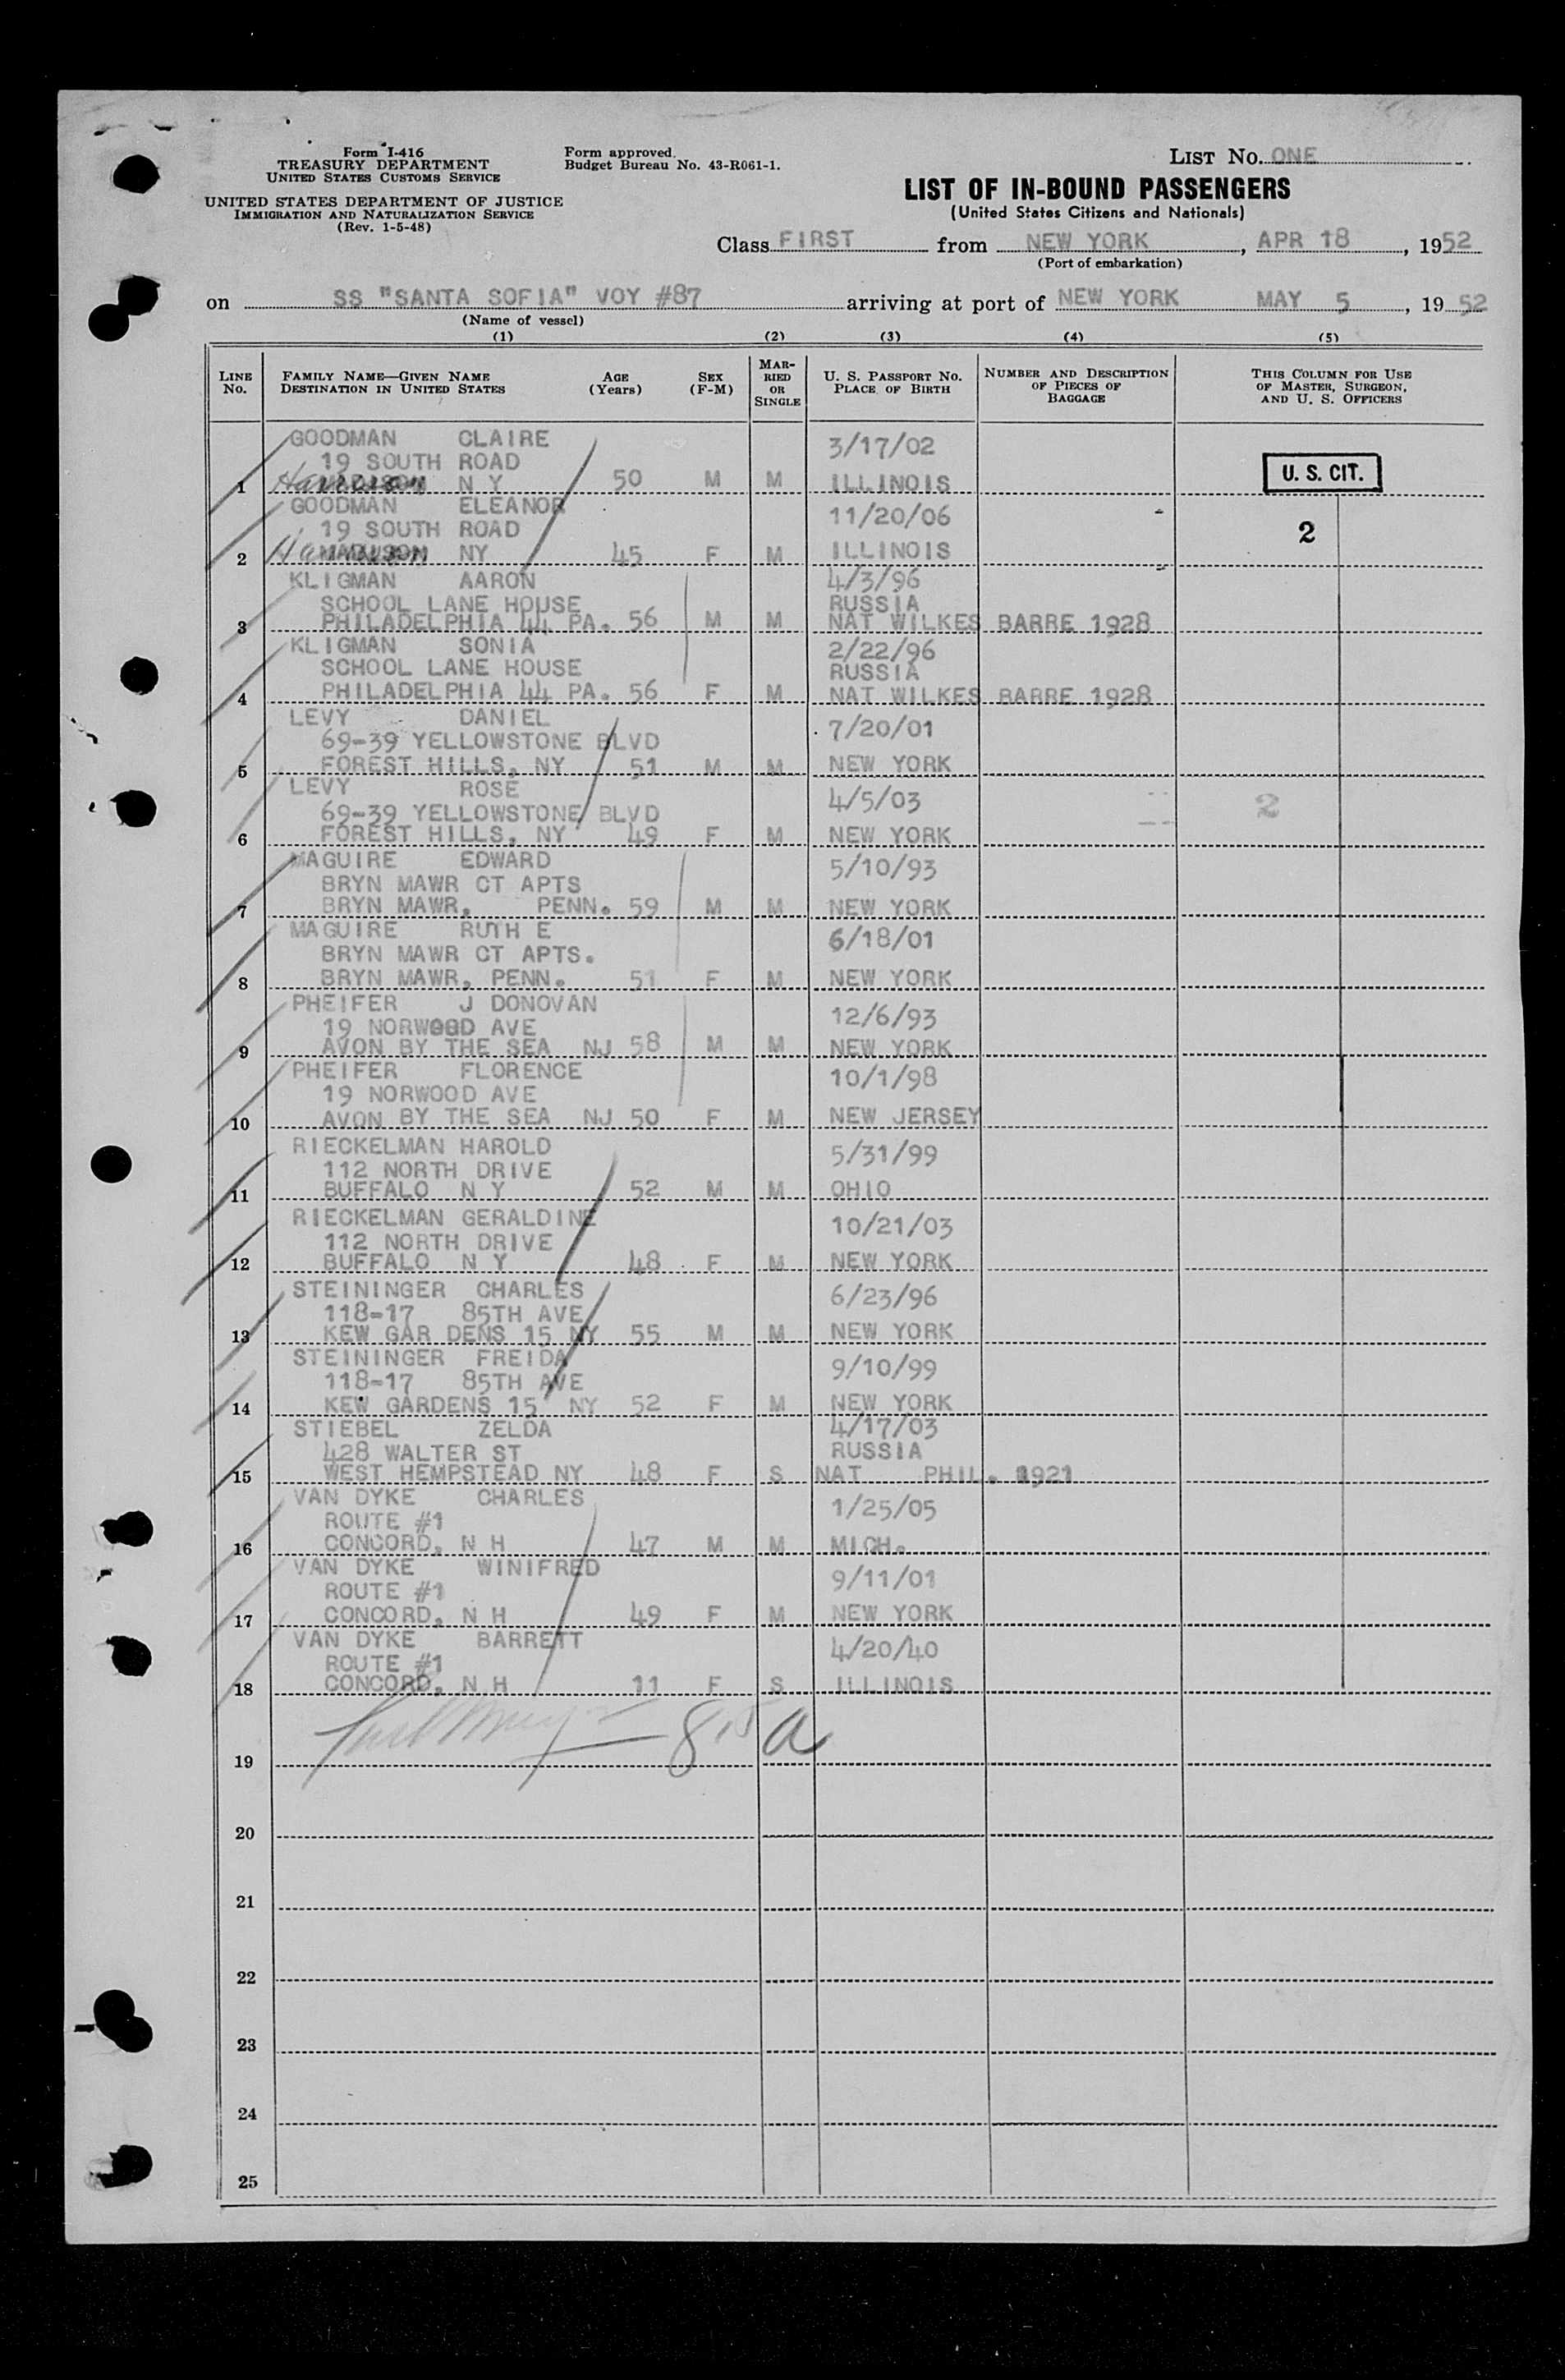 Form I-416
TREASURY DEPARTMENT
UNITED STATES CUSTOMS SERVICE
UNITED STATES DEPARTMENT OF JUSTICE
IMMIGRATION AND NATURALIZATION SERVICE
(Rev. 1-5-48)
Form approved.
Budget Bureau No. 43-R061-1.
LIST NO. ONE
LIST OF IN-BOUND PASSENGERS
(United States Citizens and Nationals)
Class FIRST from NEW YORK, APR 18, 1952
(Port of embarkation)
on SS "SANTA SOFIA" VOY #87 arriving at port of NEW YORK MAY 5, 1952
(Name of vessel)
(1) (2) (3) (4) (5)
LINE NO.
FAMILY NAME—GIVEN NAME
DESTINATION IN UNITED STATES
AGE (Years)
SEX (F-M)
MARRIED OR SINGLE
U. S. PASSPORT NO.
PLACE OF BIRTH
NUMBER AND DESCRIPTION OF PIECES OF BAGGAGE
THIS COLUMN FOR USE OF MASTER, SURGEON, AND U. S. OFFICERS
GOODMAN CLAIRE 3/17/02
19 SOUTH ROAD
1 Harrison N Y 50 M M ILLINOIS U. S. CIT.
GOODMAN ELEANOR 11/20/06
19 SOUTH ROAD 2
2 Harrison MADISON NY 45 F M ILLINOIS
KLIGMAN AARON 4/3/96
SCHOOL LANE HOUSE RUSSIA
3 PHILADELPHIA 44 PA. 56 M M NAT WILKES BARRE 1928
KLIGMAN SONIA 2/22/96
SCHOOL LANE HOUSE RUSSIA
4 PHILADELPHIA 44 PA. 56 F M NAT WILKES BARRE 1928
LEVY DANIEL 7/20/01
69-39 YELLOWSTONE BLVD
5 FOREST HILLS, NY 51 M M NEW YORK
LEVY ROSE 4/5/03
69-39 YELLOWSTONE BLVD 2
6 FOREST HILLS, NY 49 F M NEW YORK
MAGUIRE EDWARD 5/10/93
BRYN MAWR CT APTS
7 BRYN MAWR, PENN. 59 M M NEW YORK
MAGUIRE RUTH E 6/18/01
BRYN MAWR CT APTS.
8 BRYN MAWR, PENN. 51 F M NEW YORK
PHEIFER J DONOVAN 12/6/93
19 NORWOOD AVE
9 AVON BY THE SEA NJ 58 M M NEW YORK
PHEIFER FLORENCE 10/1/98
19 NORWOOD AVE
10 AVON BY THE SEA NJ 50 F M NEW JERSEY
RIECKELMAN HAROLD 5/31/99
112 NORTH DRIVE
11 BUFFALO N Y 52 M M OHIO
RIECKELMAN GERALDINE 10/21/03
112 NORTH DRIVE
12 BUFFALO N Y 48 F M NEW YORK
STEININGER CHARLES 6/23/96
118-17 85TH AVE
13 KEW GAR DENS 15 NY 55 M M NEW YORK
STEININGER FREIDA 9/10/99
118-17 85TH AVE
14 KEW GARDENS 15 NY 52 F M NEW YORK
STIEBEL ZELDA 4/17/03
428 WALTER ST RUSSIA
15 WEST HEMPSTEAD NY 48 F S NAT PHIL. 1921
VAN DYKE CHARLES 1/25/05
ROUTE #1
16 CONCORD, N H 47 M M MICH.
VAN DYKE WINIFRED 9/11/01
ROUTE #1
17 CONCORD, N H 49 F M NEW YORK
VAN DYKE BARRETT 4/20/40
ROUTE #1
18 CONCORD, N H 11 F S ILLINOIS
19
20
21
22
23
24
25